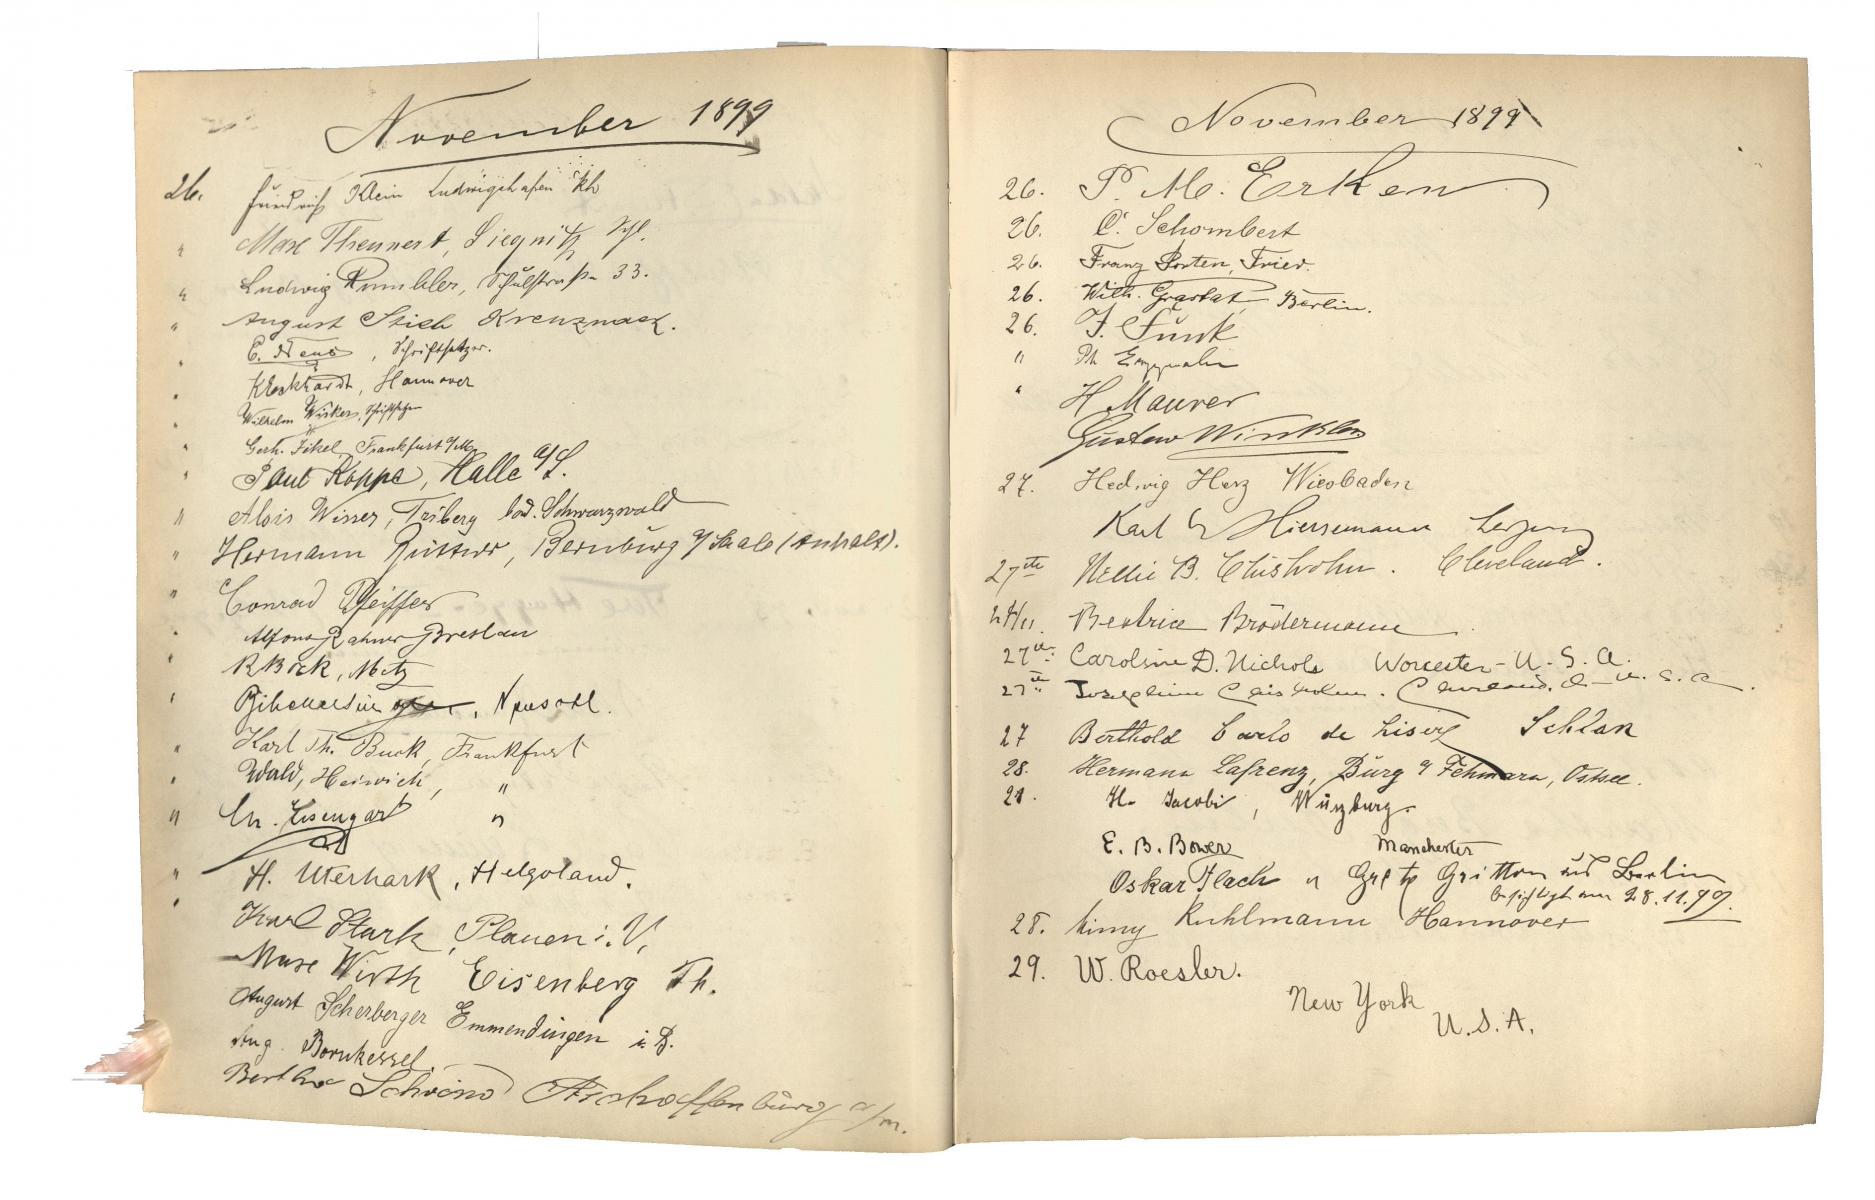 November 1899
26. Friedrich Klein Ludwigshafen Rh
" Max Thennert, Liegnitz, Schl.
" Ludwig Rumbler, Schulstraße 33.
" August Stieh Kreuznach.
" E. Neus, Schriftsetzer.
" Hannover
" Wilhelm
" Gerh. Zikel, Frankfurt a/M
" Paul Koppe, Halle a/S.
" Alois Wisser, Triberg bad. Schwarzwald
" Hermann Büttner, Bernburg a/Saale (Anhalt).
" Conrad Pfeiffer
" Alfons Rahner Breslau
" R Bock, Metz
"
" Karl Th. Buck, Frankfurt
" Wald, Heinrich, "
" Chr. Eisengart "
" H. Uterhark, Helgoland.
" Karl Stark, Plauen i. V.
Max Wirth Eisenberg Th.
August Scherberger Emmendingen i. B.
Aug. Bornkessel.
Bertha Schöno Aschaffenburg a/m.
November 1899
26. P. M. Erken
26. C. Schombert
26. Franz Porten, Trier.
26. Wilh. Berlin.
26. J. Funk
" Ph
" H. Maurer
Gustav Winkler
27. Hedwig Herz Wiesbaden
Karl W Hiersemann Leipzig
27th Nellie B. Chisholm. Cleveland.
27/11. Beatrice Brödermann
27th. Caroline D. Nichols Worcester - U. S. A.
27th Josephine Chisholm. Cleveland. O - U. S. A.
27 Berthold Carlo de
28. Hermann Lafrenz, Burg a Fehmarn, Ostsee.
28. H. Jacobi, Würzburg.
E. B. Bower Manchester
Oskar Flach u Grete Gritton aus Berlin
besichtigt am 28.11.99.
28. Minny Kuhlmann Hannover
29. W. Roesler.
New York
U.S.A.